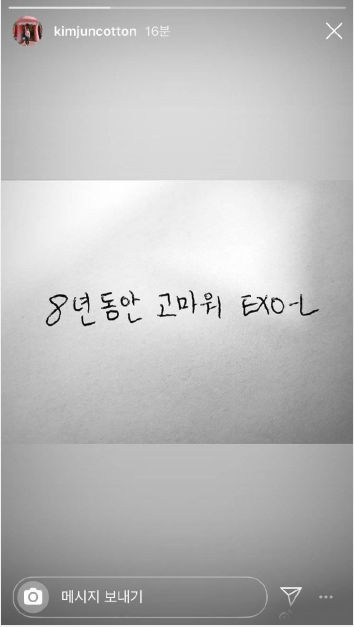 kimjuncotton 16분
8년동안 고마워 EXO-L
메시지 보내기